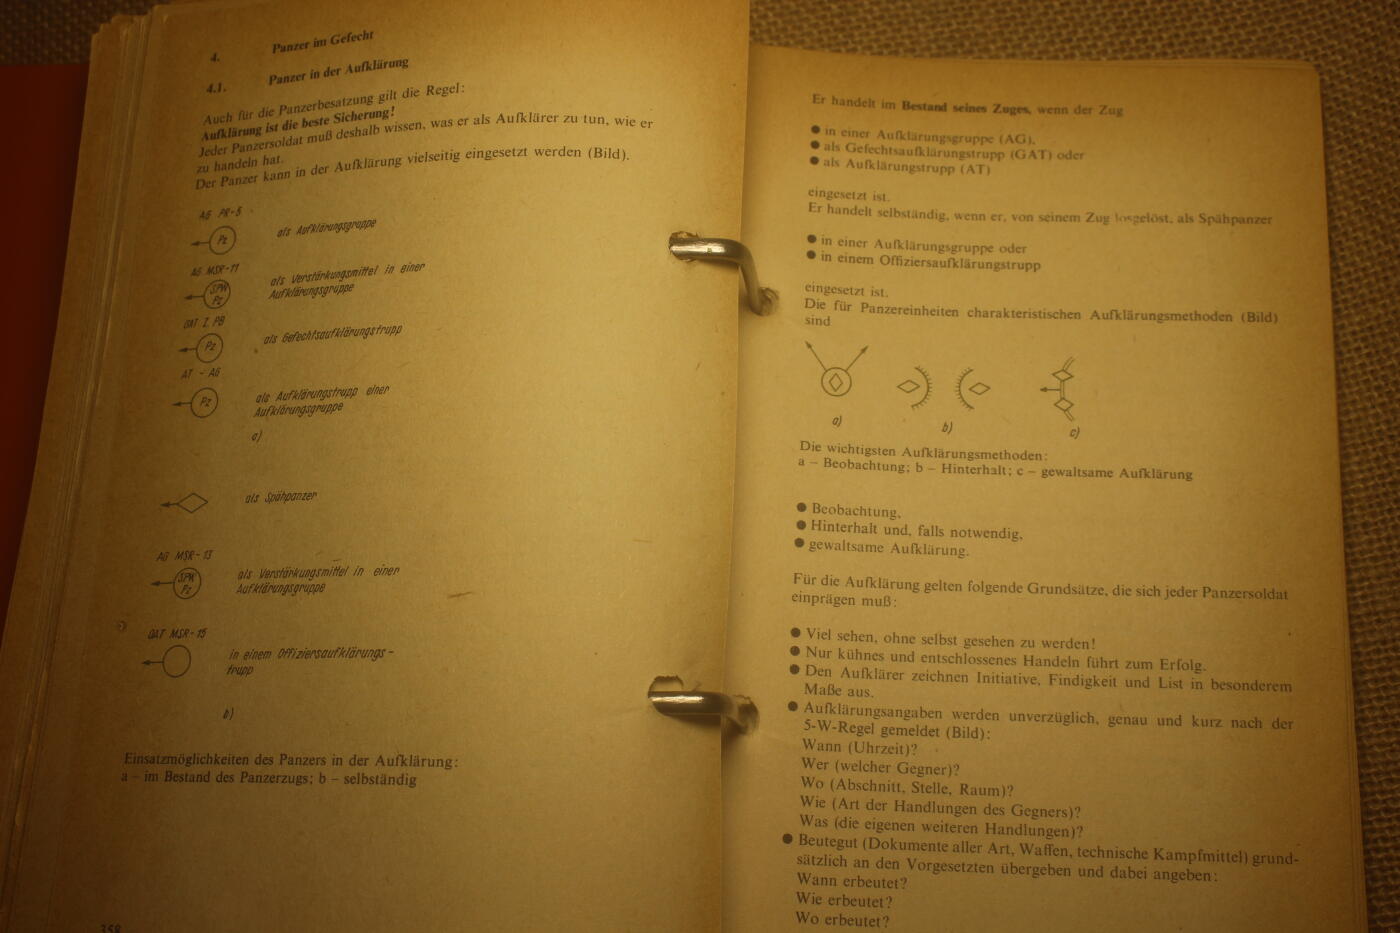 4. Panzer im Gefecht
4.1. Panzer in der Aufklärung
Auch für die Panzerbesatzung gilt die Regel:
Aufklärung ist die beste Sicherung!
Jeder Panzersoldat muß deshalb wissen, was er als Aufklärer zu tun, wie er
zu handeln hat.
Der Panzer kann in der Aufklärung vielseitig eingesetzt werden (Bild).
AG PR-5
Pz
als Aufklärungsgruppe
AG MSR-11
SPW
Pz
als Verstärkungsmittel in einer
Aufklärungsgruppe
GAT I. PB
Pz
als Gefechtsaufklärungstrupp
AT - AG
Pz
als Aufklärungstrupp einer
Aufklärungsgruppe
a)
als Spähpanzer
AG MSR-13
SPW
Pz
als Verstärkungsmittel in einer
Aufklärungsgruppe
OAT MSR-15
in einem Offiziersaufklärungs-
trupp
b)
Einsatzmöglichkeiten des Panzers in der Aufklärung:
a – im Bestand des Panzerzugs; b – selbständig
358
Er handelt im Bestand seines Zuges, wenn der Zug
● in einer Aufklärungsgruppe (AG),
● als Gefechtsaufklärungstrupp (GAT) oder
● als Aufklärungstrupp (AT)
eingesetzt ist.
Er handelt selbständig, wenn er, von seinem Zug losgelöst, als Spähpanzer
● in einer Aufklärungsgruppe oder
● in einem Offiziersaufklärungstrupp
eingesetzt ist.
Die für Panzereinheiten charakteristischen Aufklärungsmethoden (Bild)
sind
a)
b)
c)
Die wichtigsten Aufklärungsmethoden:
a – Beobachtung; b – Hinterhalt; c – gewaltsame Aufklärung
● Beobachtung,
● Hinterhalt und, falls notwendig,
● gewaltsame Aufklärung.
Für die Aufklärung gelten folgende Grundsätze, die sich jeder Panzersoldat
einprägen muß:
● Viel sehen, ohne selbst gesehen zu werden!
● Nur kühnes und entschlossenes Handeln führt zum Erfolg.
● Den Aufklärer zeichnen Initiative, Findigkeit und List in besonderem
Maße aus.
● Aufklärungsangaben werden unverzüglich, genau und kurz nach der
5-W-Regel gemeldet (Bild):
Wann (Uhrzeit)?
Wer (welcher Gegner)?
Wo (Abschnitt, Stelle, Raum)?
Wie (Art der Handlungen des Gegners)?
Was (die eigenen weiteren Handlungen)?
● Beutegut (Dokumente aller Art, Waffen, technische Kampfmittel) grund-
sätzlich an den Vorgesetzten übergeben und dabei angeben:
Wann erbeutet?
Wie erbeutet?
Wo erbeutet?